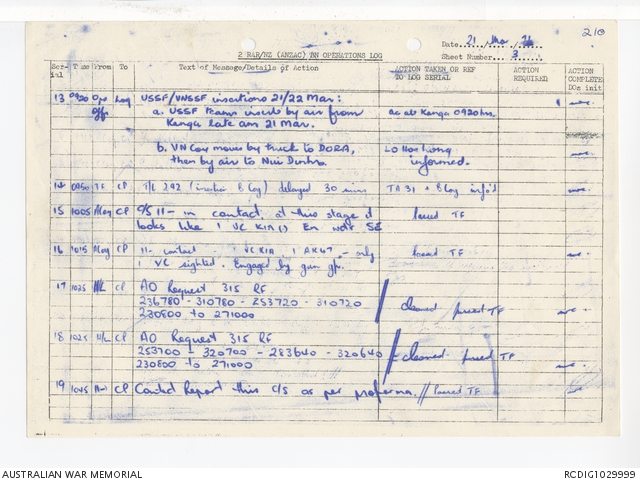 210
2 RAR/NZ (ANZAC) BN OPERATIONS LOG
Date 21 / Mar / 71
Sheet Number 3
Serial Time From To Text of Message/Details of Action ACTION TAKEN OR REF TO LOG SERIAL ACTION REQUIRED ACTION COMPLETE DOs init
13 0920 Ops Offr Log USSF/VNSSF insertions 21/22 Mar:
a. USSF teams insert by air from Kanga late am 21 Mar.
0920 hrs.
b. VN Coy moves by truck to DORA, then by air to Nui Dinhs.
LO informed.
14 0950 TF CP T/L 242 (insertion B Coy) delayed 30 mins TA 31 + B Coy info'd
15 1005 CP C/S 11 – in contact, at this stage it looks like 1 VC KIA () En wdr SE TF
16 1015 CP 11 – contact 1 VC KIA 1 AK47 – only 1 VC sighted. Engaged by gun gp. TF
17 1025 CP AO Request 315 RF
236780 – 310780 – 253720 – 310720
230800 to 271000
cleared TF
18 1025 CP AO Request 315 RF
253700 – 320700 – 283640 – 320640
230800 to 271000
cleared TF
19 1045 CP Contact Report this C/S as per proforma. // TF
AUSTRALIAN WAR MEMORIAL
RCDIG1029999